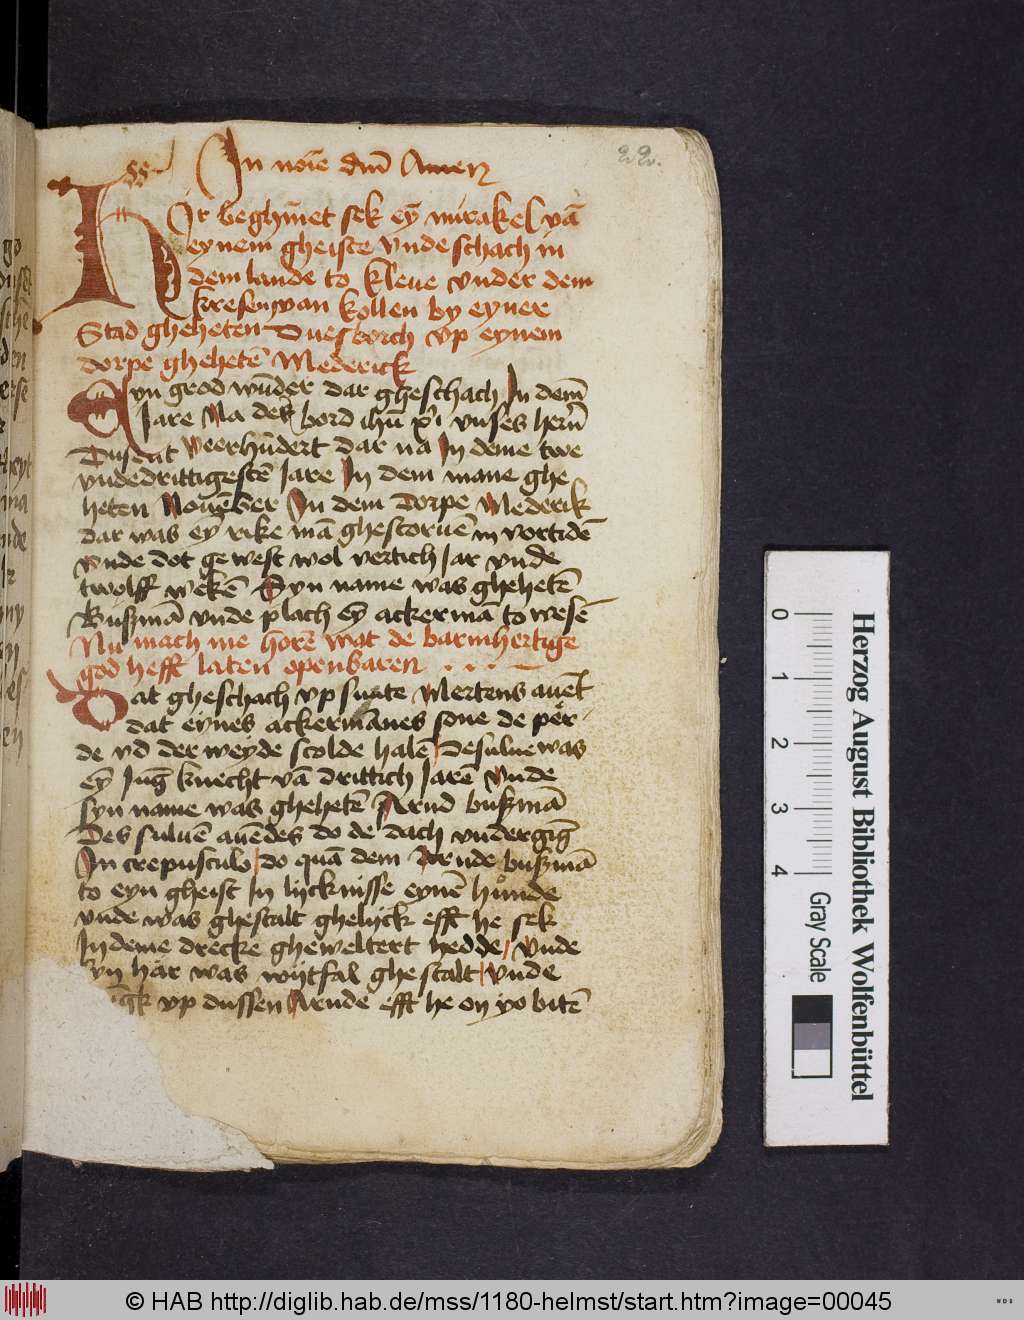 22.
In noīe dnī Amen
Hir beghīnet sek eȳ mirakel vā
eynem gheiste vnde schach in
dem lande to kleue vnder dem
kresem van kollen by eyner
Stad gheheten Duesborch vp eynem
dorpe ghehetē Mederick
Eyn grod wūder dar gheschach In demē
Jare Na der bord ihū xp̄i vnses hern̄
Dusent veerhūdert dar na In deme twe
vndedrittigestē Jare In dem mane ghe
heten Nouēber In dem Dorpe Mederik
dar was eȳ rike mā ghestoruē in vortidē
vnde dot gewest wol vertich Jar vnde
twolff wekē Syn name was ghehetē
Buszmā vnde plach eȳ ackermā to wesē
Nu mach me horē wat de barmhertige
god hefft laten openbaren
Dat gheschach vp sunte Mertens auēt
dat eynes ackermānes sone de per
de vd der weyde scolde halē Desulue was
eȳ Jūg knecht vā drittich Jarē vnde
syn name was ghehetē Arnd buszmā
Des suluē auēdes do de dach vndergīg
In crepusculo do quā dem Arnde buszmā
to eyn gheist In lijcknisse eynē hunde
vnde was ghestalt ghelijck efft he sek
In deme drecke gheweltert hedde vnde
syn här was wijtfal ghestalt vnde
vp dussen Arnde efft he on yo bitē
0 1 2 3 4
Gray Scale
Herzog August Bibliothek Wolfenbüttel
© HAB http://diglib.hab.de/mss/1180-helmst/start.htm?image=00045